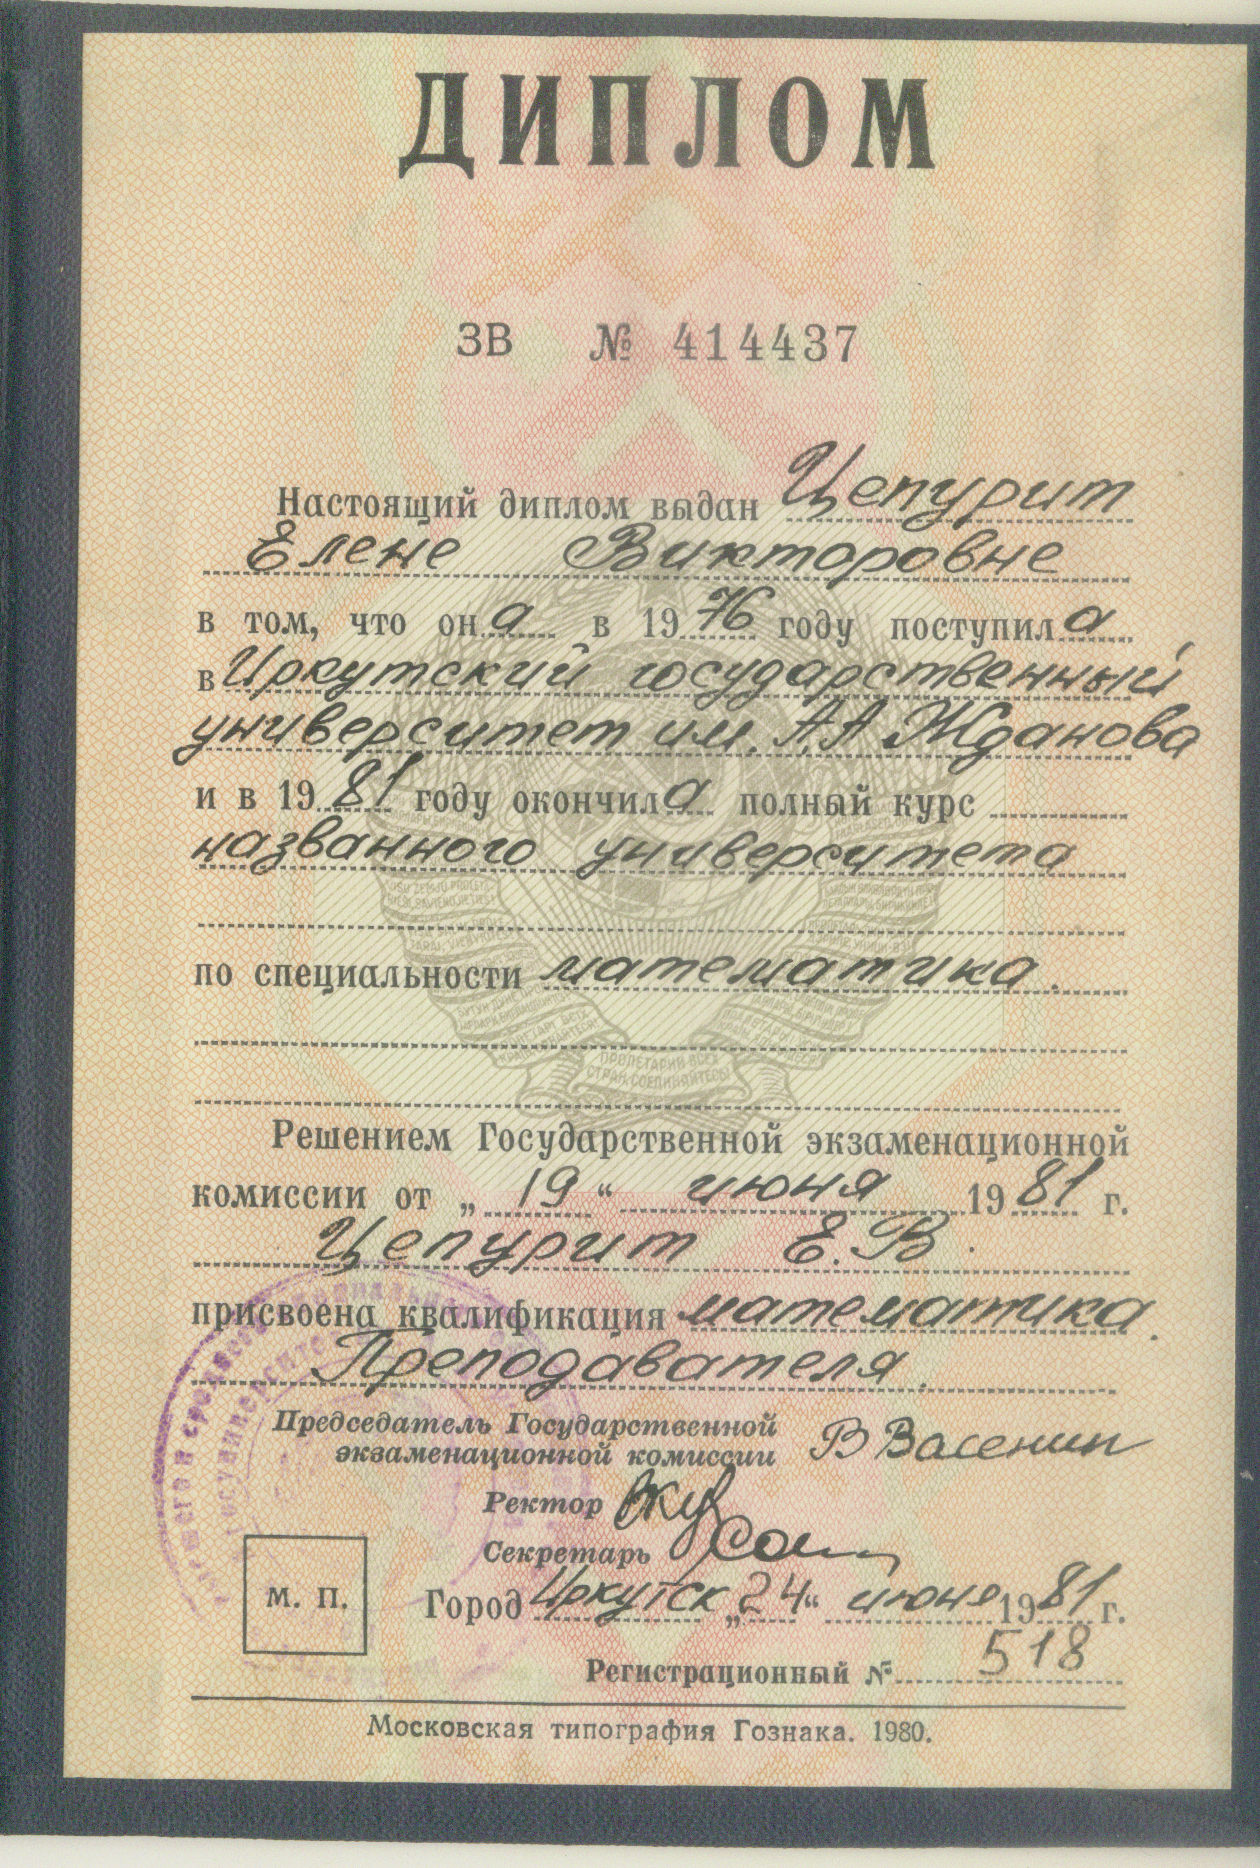 ДИПЛОМ
ЗВ № 414437
Настоящий диплом выдан Цепурит
Елене Викторовне
в том, что она в 1976 году поступила
в Иркутский государственный
университет им. А.А Жданова
и в 1981 году окончила полный курс
названного университета
по специальности математика.
ПРОЛЕТАРИИ ВСЕХ
СТРАН, СОЕДИНЯЙТЕСЬ!
Решением Государственной экзаменационной
комиссии от „19“ июня 1981 г.
Цепурит Е.В.
присвоена квалификация математика.
Преподавателя.
Председатель Государственной
экзаменационной комиссии В Васенин
Ректор
Секретарь
М. П.
Город Иркутск „24“ июня 1981 г.
Регистрационный № 518
Московская типография Гознака. 1980.